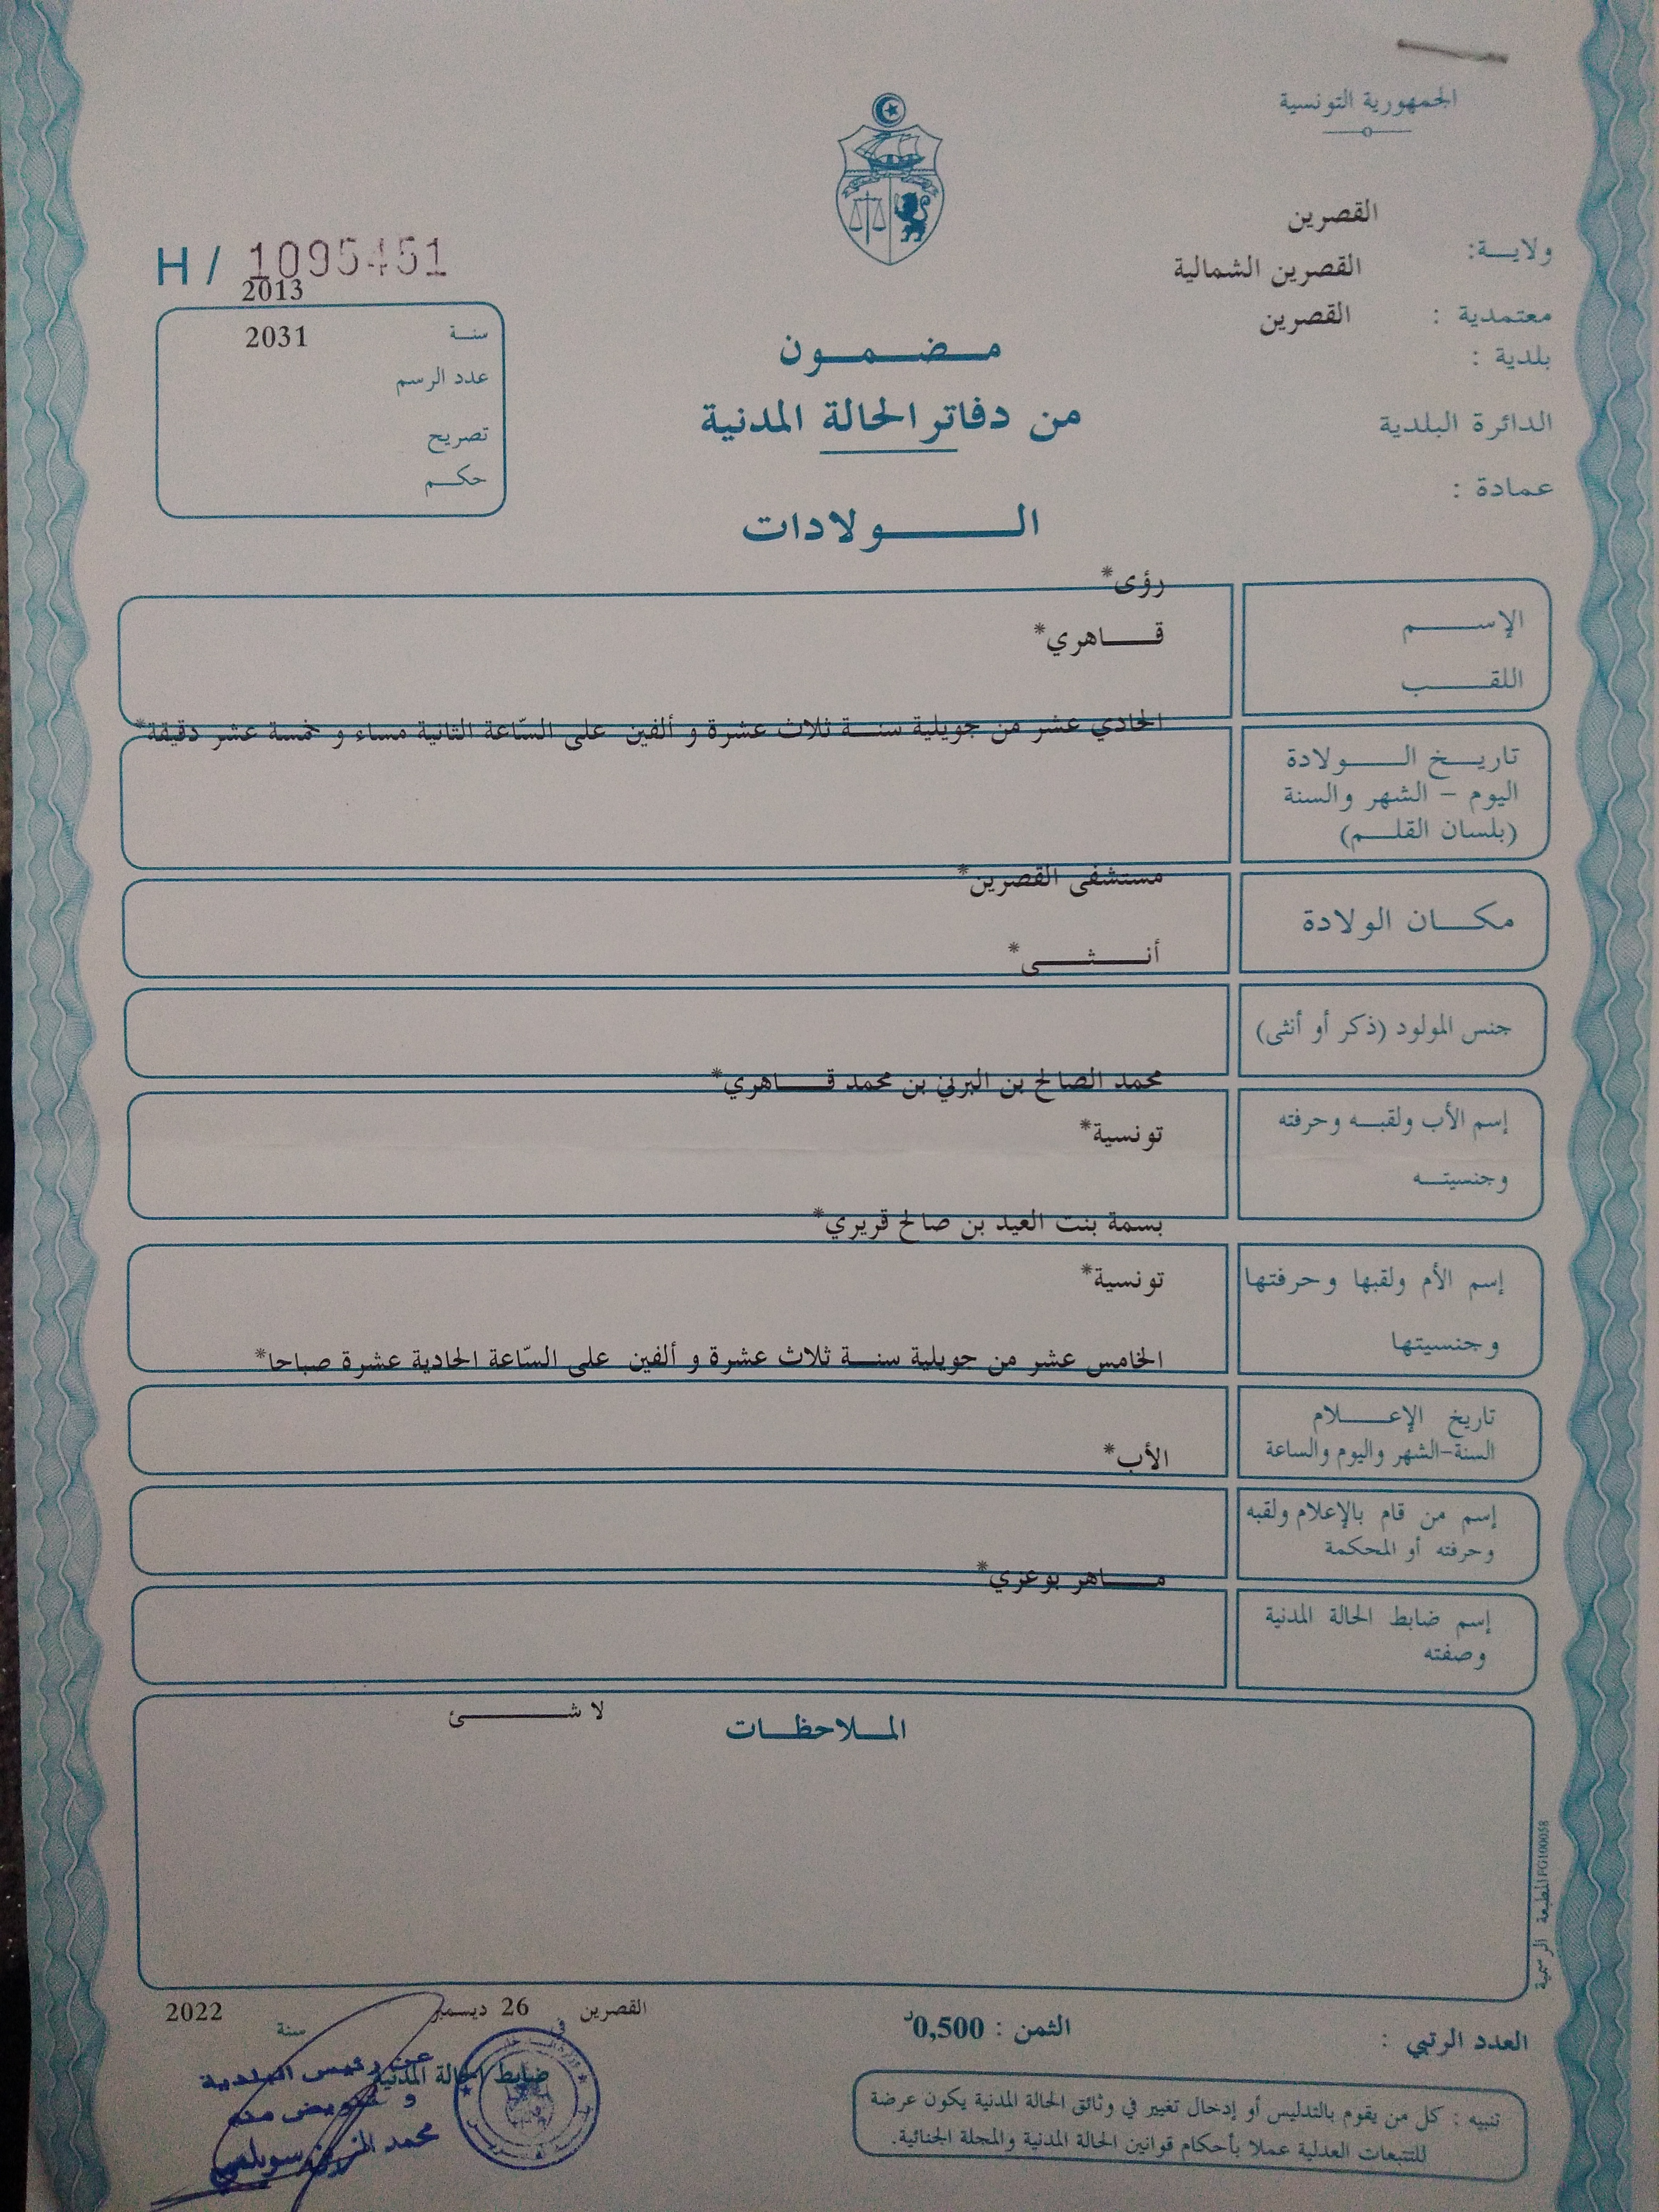 الجمهورية التونسية
القصرين
ولايـــة:
القصرين الشمالية
معتمدية :
القصرين
بلدية :
الدائرة البلدية
عمادة :
H / 1095451
2013
سنـــة
2031
عدد الرسم
تصريح
حكــم
مــضــمــون
من دفاتر الحالة المدنية
الـــولادات
رؤى*
الإســـم
قـــاهري*
اللقـــب
الحادي عشر من جويلية سنـــة ثلاث عشرة و ألفين على السّاعة الثانية مساء و خمسة عشر دقيقة*
تاريـــخ الـــولادة
اليوم – الشهر والسنة
(بلسان القلـــم)
مستشفى القصرين*
مكـــان الولادة
أنـــثـــى*
جنس المولود (ذكر أو أنثى)
محمد الصالح بن البرني بن محمد قـــاهري*
إسم الأب ولقبـــه وحرفته
تونسية*
وجنسيتـــه
بسمة بنت العيد بن صالح قريري*
إسم الأم ولقبها وحرفتها
تونسية*
وجنسيتها
الخامس عشر من جويلية سنـــة ثلاث عشرة و ألفين على السّاعة الحادية عشرة صباحا*
تاريخ الإعـــلام
السنة-الشهر واليوم والساعة
الأب*
إسم من قام بالإعلام ولقبه
وحرفته أو المحكمة
مـــاهر بوعزي*
إسم ضابط الحالة المدنية
وصفته
المــلاحظــات
لا شـــئ
المطبعة الرسمية FG100058
العدد الرتبي :
الثمن : 0,500د
القصرين في 26 ديسمبر سنة 2022
ضابط الحالة المدنية
عن رئيس البلدية
و تفويض منه
محمد
تنبيه : كل من يقوم بالتدليس أو إدخال تغيير في وثائق الحالة المدنية يكون عرضة
للتتبعات العدلية عملا بأحكام قوانين الحالة المدنية والمجلة الجنائية.